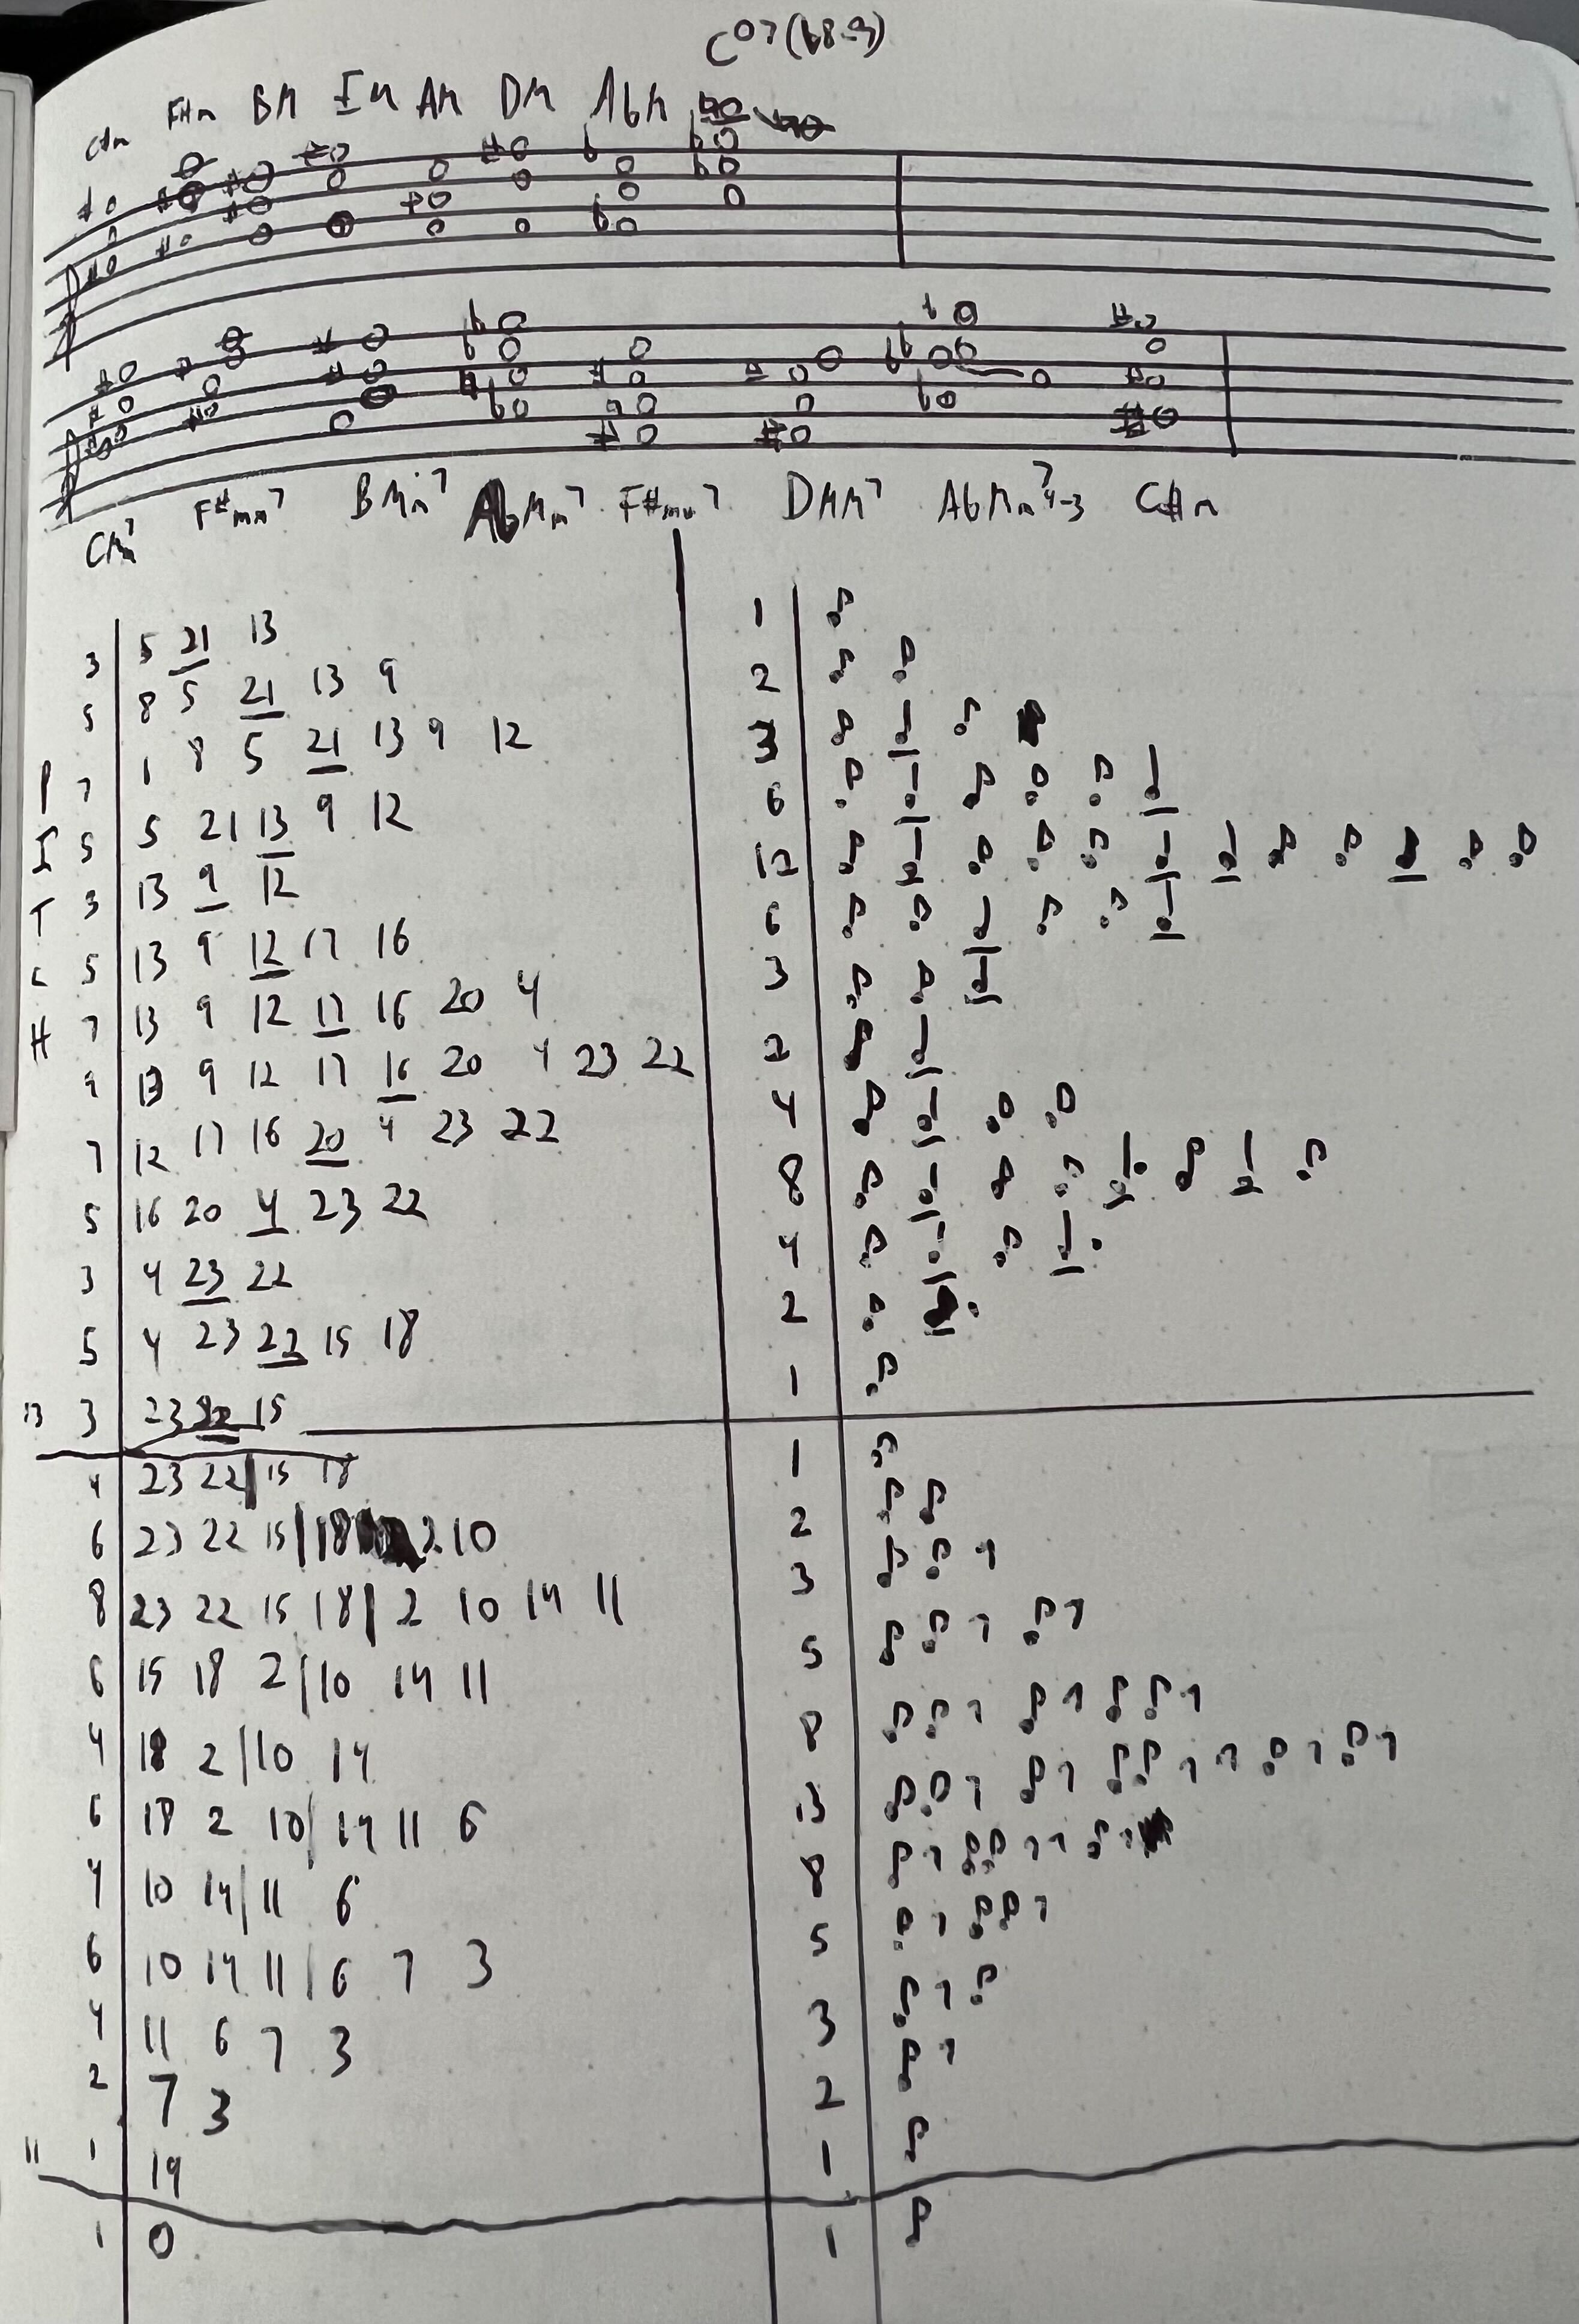 C°7(b8-9)
C#m F#m BM EM AM DM AbM
F#mm7 BMm7 AbMm7 F#mm7 DMM7 AbMm7 4-3 C#m
PITCH
3 5 21 13
5 8 5 21 13 9
7 1 8 5 21 13 9 12
5 5 21 13 9 12
3 13 9 12
5 13 9 12 17 16
7 13 9 12 17 16 20 4
9 13 9 12 17 16 20 4 23 22
7 12 17 16 20 4 23 22
5 16 20 4 23 22
3 4 23 22
5 4 23 22 15 18
13 3 23 22 15
4 23 22 | 15 18
6 23 22 15 | 18 2 10
8 23 22 15 18 | 2 10 14 11
6 15 18 2 | 10 14 11
4 18 2 | 10 14
6 18 2 10 | 14 11 6
4 10 14 | 11 6
6 10 14 11 | 6 7 3
4 11 6 7 3
2 7 3
11 1 19
1 0
1
2
3
6
12
6
3
2
4
8
4
2
1
1
2
3
5
8
13
8
5
3
2
1
1